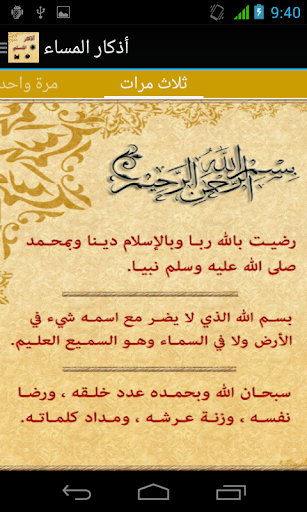 9:40
أذكار المساء
ثلاث مرات
مرة واحد
بسم الله الرحمن الرحيم
رضيت بالله ربا وبالإسلام دينا وبمحمد
صلى الله عليه وسلم نبيا.
بسم الله الذي لا يضر مع اسمه شيء في
الأرض ولا في السماء وهو السميع العليم.
سبحان الله وبحمده عدد خلقه ، ورضا
نفسه ، وزنة عرشه ، ومداد كلماته.